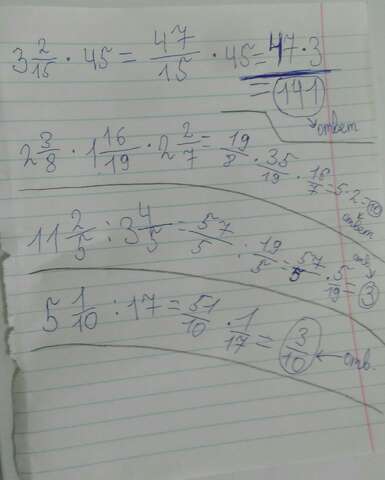 3 2/15 · 45 = 47/15 · 45 = 47 · 3
= 141
ответ
2 3/8 · 1 16/19 · 2 2/7 = 19/8 · 35/19 · 16/7 = 5 · 2 = 10
ответ
11 2/5 : 3 4/5 = 57/5 : 19/5 = 57/5 · 5/19 = 3
отв
5 1/10 : 17 = 51/10 · 1/17 = 3/10 ← отв.